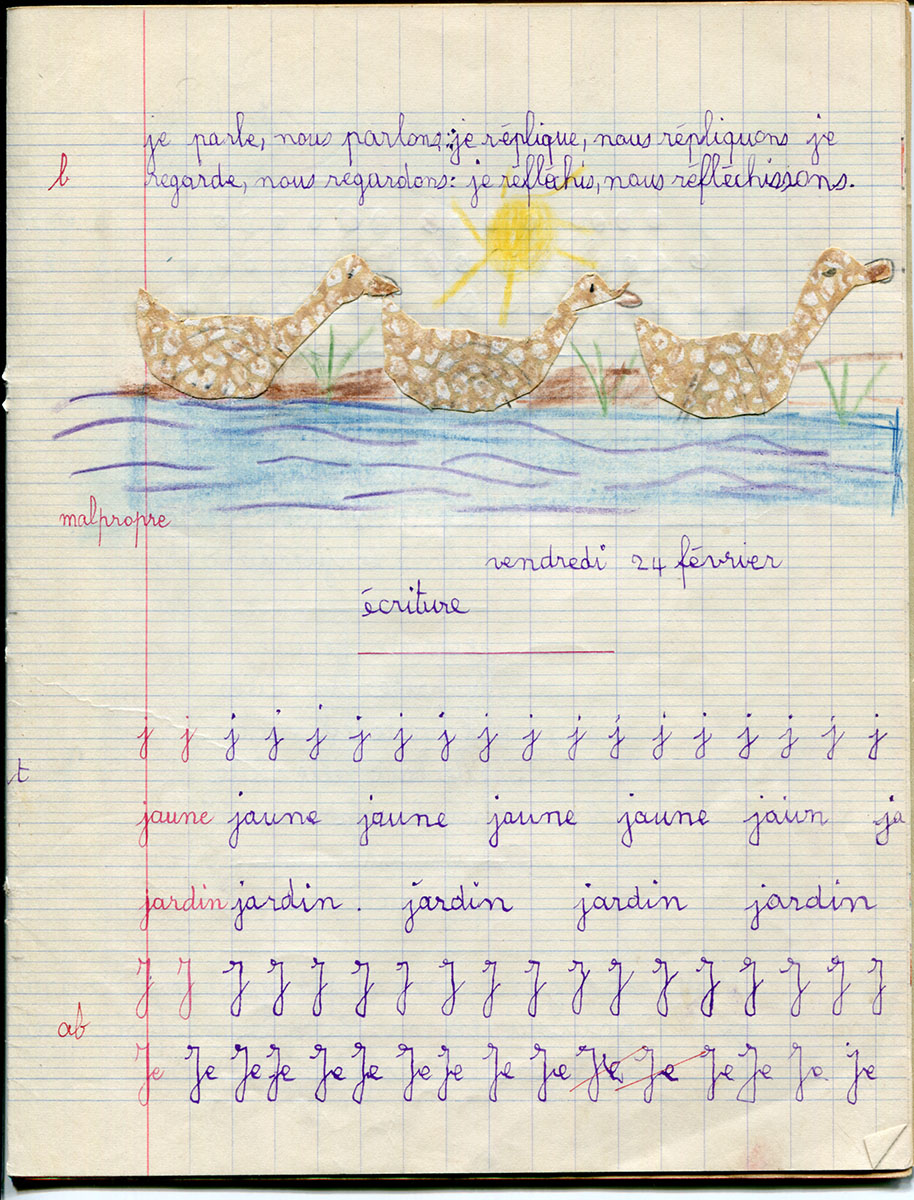 je parle, nous parlons : je réplique, nous répliquons je
b regarde, nous regardons : je réfléchis, nous réfléchissons.
malpropre
vendredi 24 février
écriture
j j j j j j j j j j j j j j j j j j
t
jaune jaune jaune jaune jaune jaun ja
jardin jardin . jardin jardin jardin
J J J J J J J J J J J J J J J J J J
ab
Je Je Je Je Je Je Je Je Je Je Je Je Je Je Je je